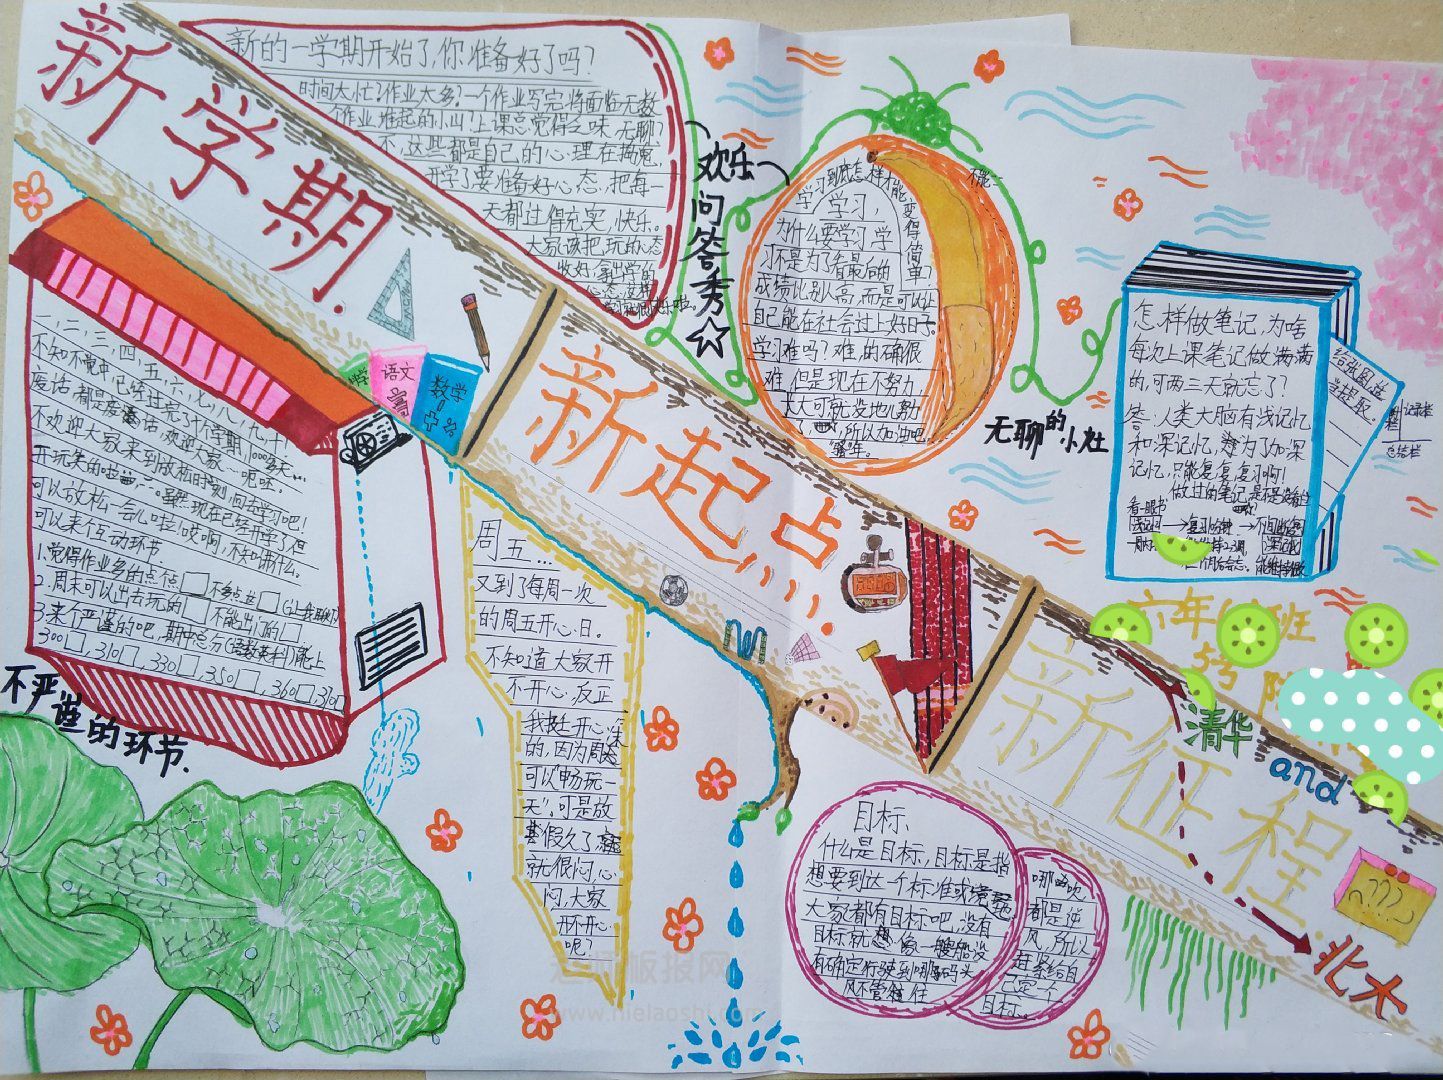 新学期.
新起点
新征程
新的一学期开始了,你准备好了吗?
时间太忙?作业太多?一个作业写完将面临无数
个作业堆起的小山?上课总觉得乏味,无聊?
不,这些都是自己的心理在捣鬼,
开学了要准备好心态,把每一
天都过得充实,快乐。
大家该把玩的心态
收好,拿出学的
欢乐
问
答
秀
学习到底怎样才能
变得简单?
学习,
为什么要学习,学
习不是为了看最后的
成绩比别人高,而是可以让
自己能在社会过上好日子。
学习难吗?难,的确很
难,但是现在不努力,
大可就没地儿努力
了,所以加油吧
无聊的小灶
怎样做笔记,为啥
每次上课笔记做满满
的,可两三天就忘了?
答:人类大脑有浅记忆
和深记忆,难为了加深
记忆,只能复复复习啊!
看一眼书
记录栏
总结栏
语文
数学
一,二,三,四,五,六,七,八,九,十
不知不觉中,已经过完了十个学期,1000多天…
废话都是废话,欢迎大家…呃哒,
不欢迎大家来到放松时刻,回去学习吧!
可以放松一会儿哇!哎啊,不知讲什么。
可以来个互动环节
1.觉得作业多的点点□不多点点□
2.周末可以出去玩的□不能出门的□
3.来个严谨的吧,期中总分(语数英科)能上
300□,310□,330□,350□,360□,370
不严谨的环节.
周五…
又到了每周一次
的周五开心日。
不知道大家开
不开心,反正
我挺开心
的,因为周末
可以“畅玩一
天”,可是放
假久了
就很闷,心
闷,大家
开不开心
呢?
目标、
什么是目标,目标是指
想要到达一个标准或境界
大家都有目标吧,没有
目标就想象一艘船没
有确定行驶到哪个码头,
风不管往
哪吹,
都是逆
风,所以
赶紧给自
己定个
目标。
六年
班
5号
清华
and
北大
????
www.nielaoshi.com